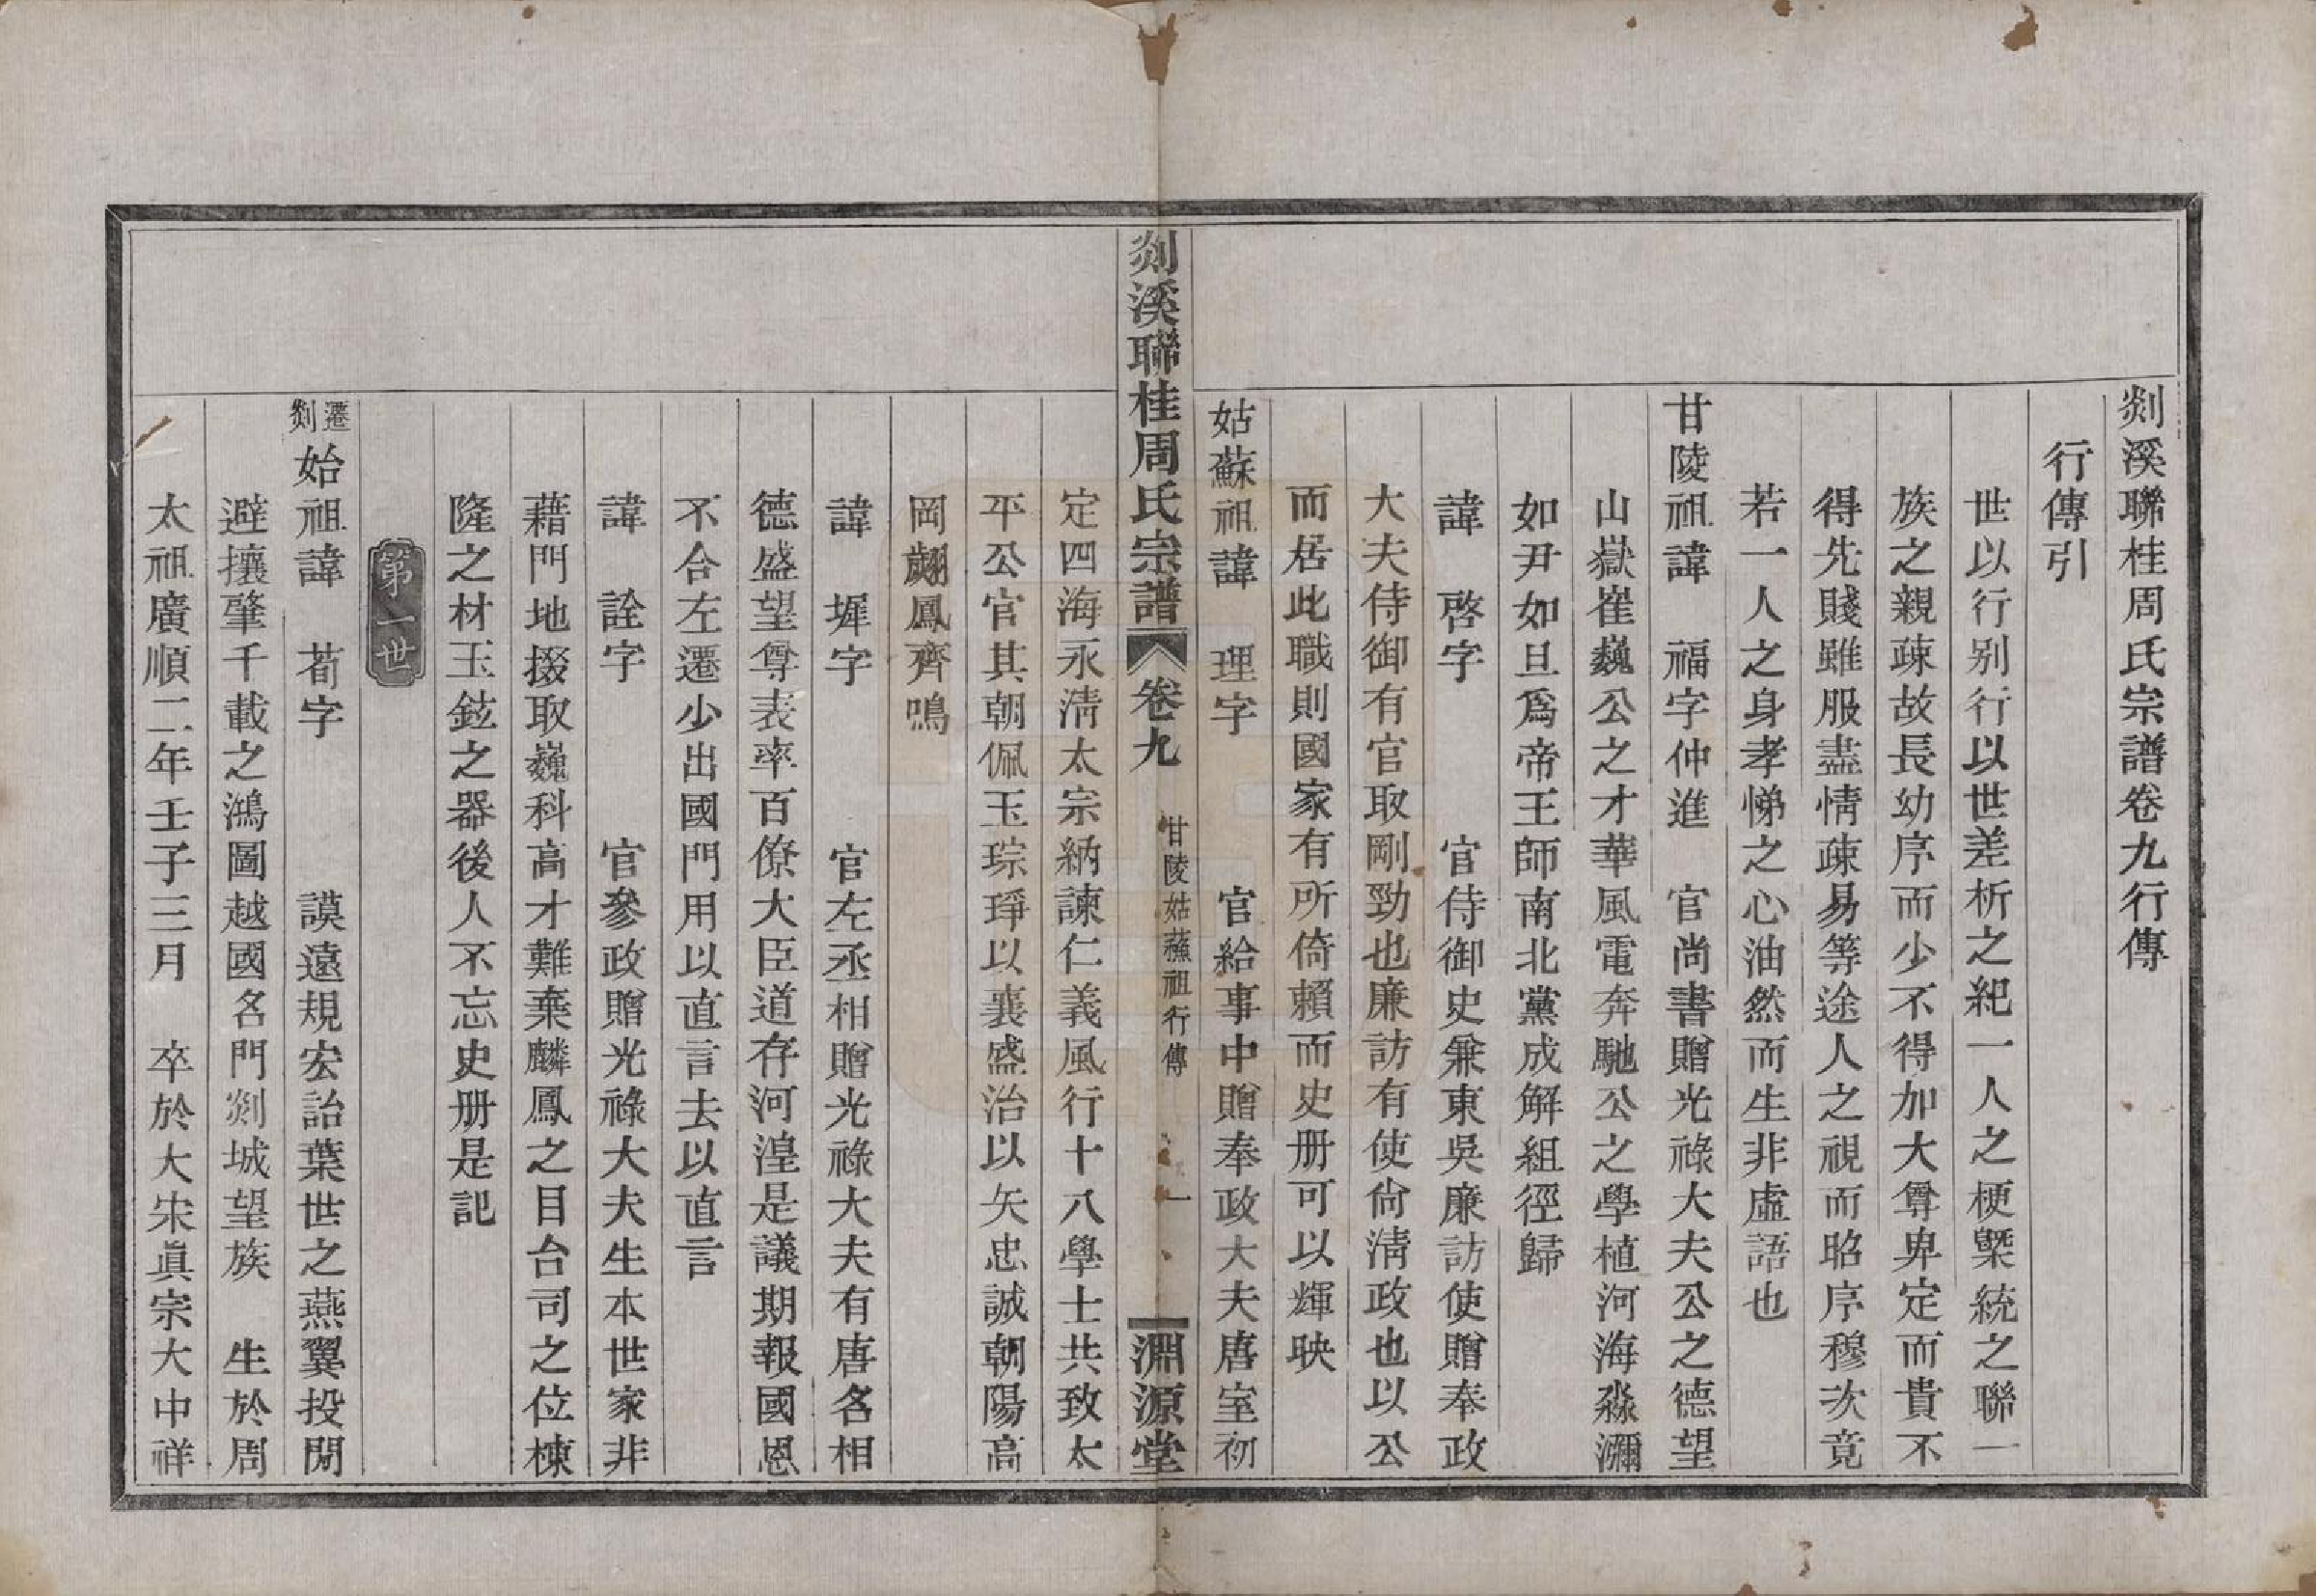 剡溪聯桂周氏宗譜卷九行傳
行傳引
世以行别行以世差析之紀一人之梗槩統之聯一
族之親疎故長幼序而少不得加大尊卑定而貴不
得先賤雖服盡情疎易等途人之視而昭序穆次竟
若一人之身孝悌之心油然而生非虛語也
甘陵祖諱 福字仲進 官尚書贈光祿大夫公之德望
山嶽崔巍公之才華風電奔馳公之學植河海淼瀰
如尹如旦爲帝王師南北黨成解組徑歸
諱 啓字 官侍御史兼東吳廉訪使贈奉政
大夫侍御有官取剛勁也廉訪有使尙淸政也以公
而居此職則國家有所倚賴而史册可以輝映
姑蘇祖諱 理字 官給事中贈奉政大夫唐室初
剡溪聯桂周氏宗譜 卷九 甘陵姑蘇祖行傳 一 淵源堂
定四海永淸太宗納諫仁義風行十八學士共致太
平公官其朝佩玉琮琤以襄盛治以矢忠誠朝陽高
岡翽鳳齊鳴
諱 墀字 官左丞相贈光祿大夫有唐各相
德盛望尊表率百僚大臣道存河湟是議期報國恩
不合左遷少出國門用以直言去以直言
諱 詮字 官參政贈光祿大夫生本世家非
藉門地掇取巍科高才難棄麟鳳之目台司之位棟
隆之材玉鉉之器後人不忘史册是記
第一世
遷剡始祖諱 荀字 謨遠規宏詒葉世之燕翼投閒
避攘肇千載之鴻圖越國名門剡城望族 生於周
太祖廣順二年壬子三月 卒於大宋眞宗大中祥